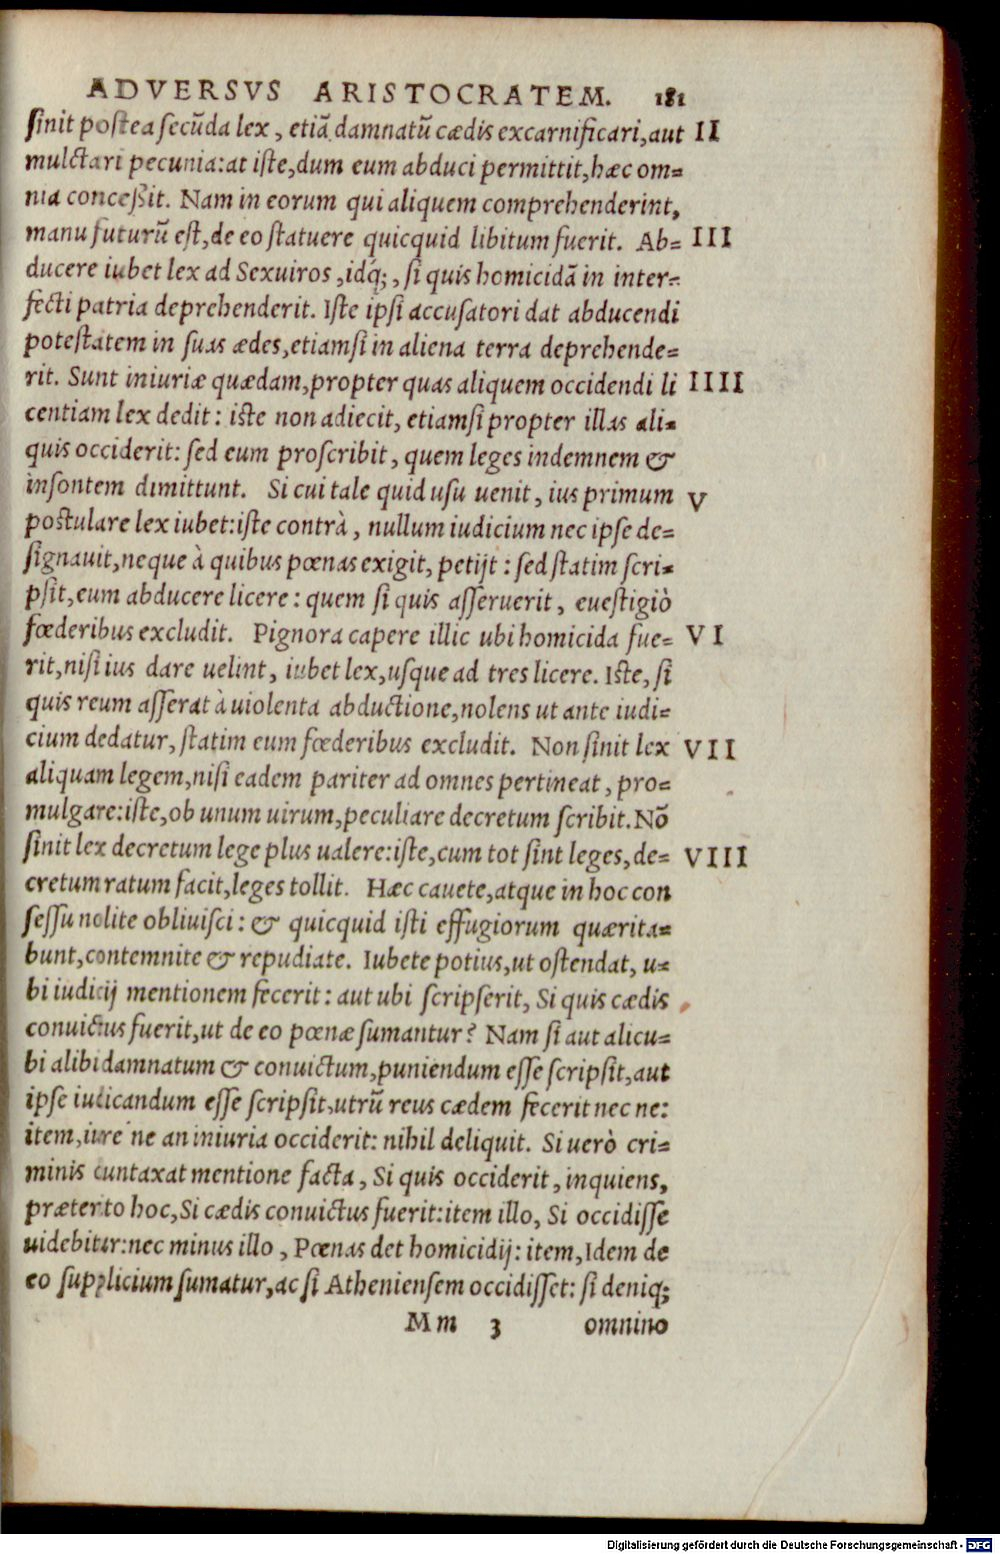 ADVERSVS ARISTOCRATEM. 181
sinit postea secūda lex, etiā damnatū cædis excarnificari, aut II
mulctari pecunia: at iste, dum eum abduci permittit, hæc om=
nia conceßit. Nam in eorum qui aliquem comprehenderint,
manu futurū est, de eo statuere quicquid libitum fuerit. Ab= III
ducere iubet lex ad Sexuiros, idq́;, si quis homicidā in inter=
fecti patria deprehenderit. Iste ipsi accusatori dat abducendi
potestatem in suas ædes, etiamsi in aliena terra deprehende=
rit. Sunt iniuriæ quædam, propter quas aliquem occidendi li IIII
centiam lex dedit: iste non adiecit, etiamsi propter illas ali=
quis occiderit: sed eum proscribit, quem leges indemnem &
insontem dimittunt. Si cui tale quid usu uenit, ius primum V
postulare lex iubet: iste contrà, nullum iudicium nec ipse de=
signauit, neque à quibus pœnas exigit, petijt: sed statim scri=
psit, eum abducere licere: quem si quis asseruerit, euestigiò
fœderibus excludit. Pignora capere illic ubi homicida fue= VI
rit, nisi ius dare uelint, iubet lex, usque ad tres licere. Iste, si
quis reum asserat à uiolenta abductione, nolens ut ante iudi=
cium dedatur, statim eum fœderibus excludit. Non sinit lex VII
aliquam legem, nisi eadem pariter ad omnes pertineat, pro=
mulgare: iste, ob unum uirum, peculiare decretum scribit. Nō
sinit lex decretum lege plus ualere: iste, cum tot sint leges, de= VIII
cretum ratum facit, leges tollit. Hæc cauete, atque in hoc con
sessu nolite obliuisci: & quicquid isti effugiorum quærita=
bunt, contemnite & repudiate. Iubete potius, ut ostendat, u=
bi iudicij mentionem fecerit: aut ubi scripserit, Si quis cædis
conuictus fuerit, ut de eo pœnæ sumantur? Nam si aut alicu=
bi alibi damnatum & conuictum, puniendum esse scripsit, aut
ipse iudicandum esse scripsit, utrū reus cædem fecerit nec ne:
item, iure ne an iniuria occiderit: nihil deliquit. Si uerò cri=
minis duntaxat mentione facta, Si quis occiderit, inquiens,
præterito hoc, Si cædis conuictus fuerit: item illo, Si occidisse
uidebitur: nec minus illo, Pœnas det homicidij: item, Idem de
eo supplicium sumatur, ac si Atheniensem occidisset: si deniq;
Mm 3 omnino
Digitalisierung gefördert durch die Deutsche Forschungsgemeinschaft - DFG